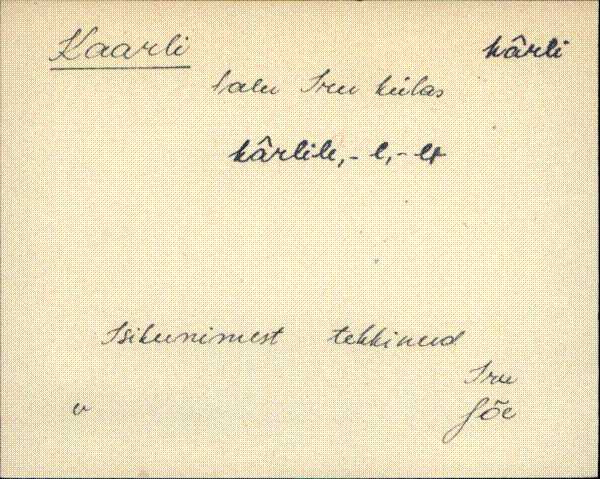 Kaarli kârli
talu Iru külas
kârlile, -l, -lt
Isikunimest tekkinud
Iru
v Jõe